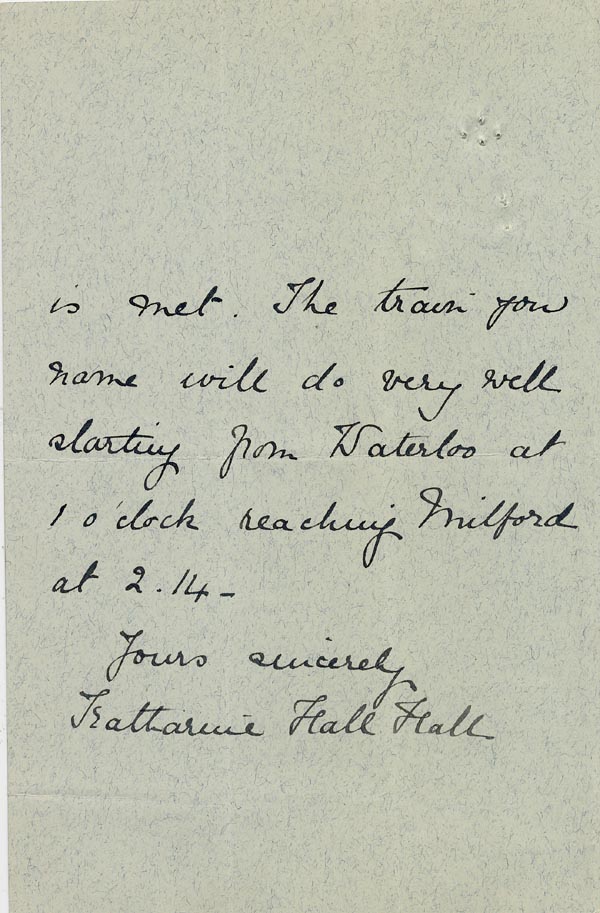 is met. The train you
name will do very well
starting from Waterloo at
1 o'clock reaching Milford
at 2.14 -
Yours sincerely
Katharine Hall Hall